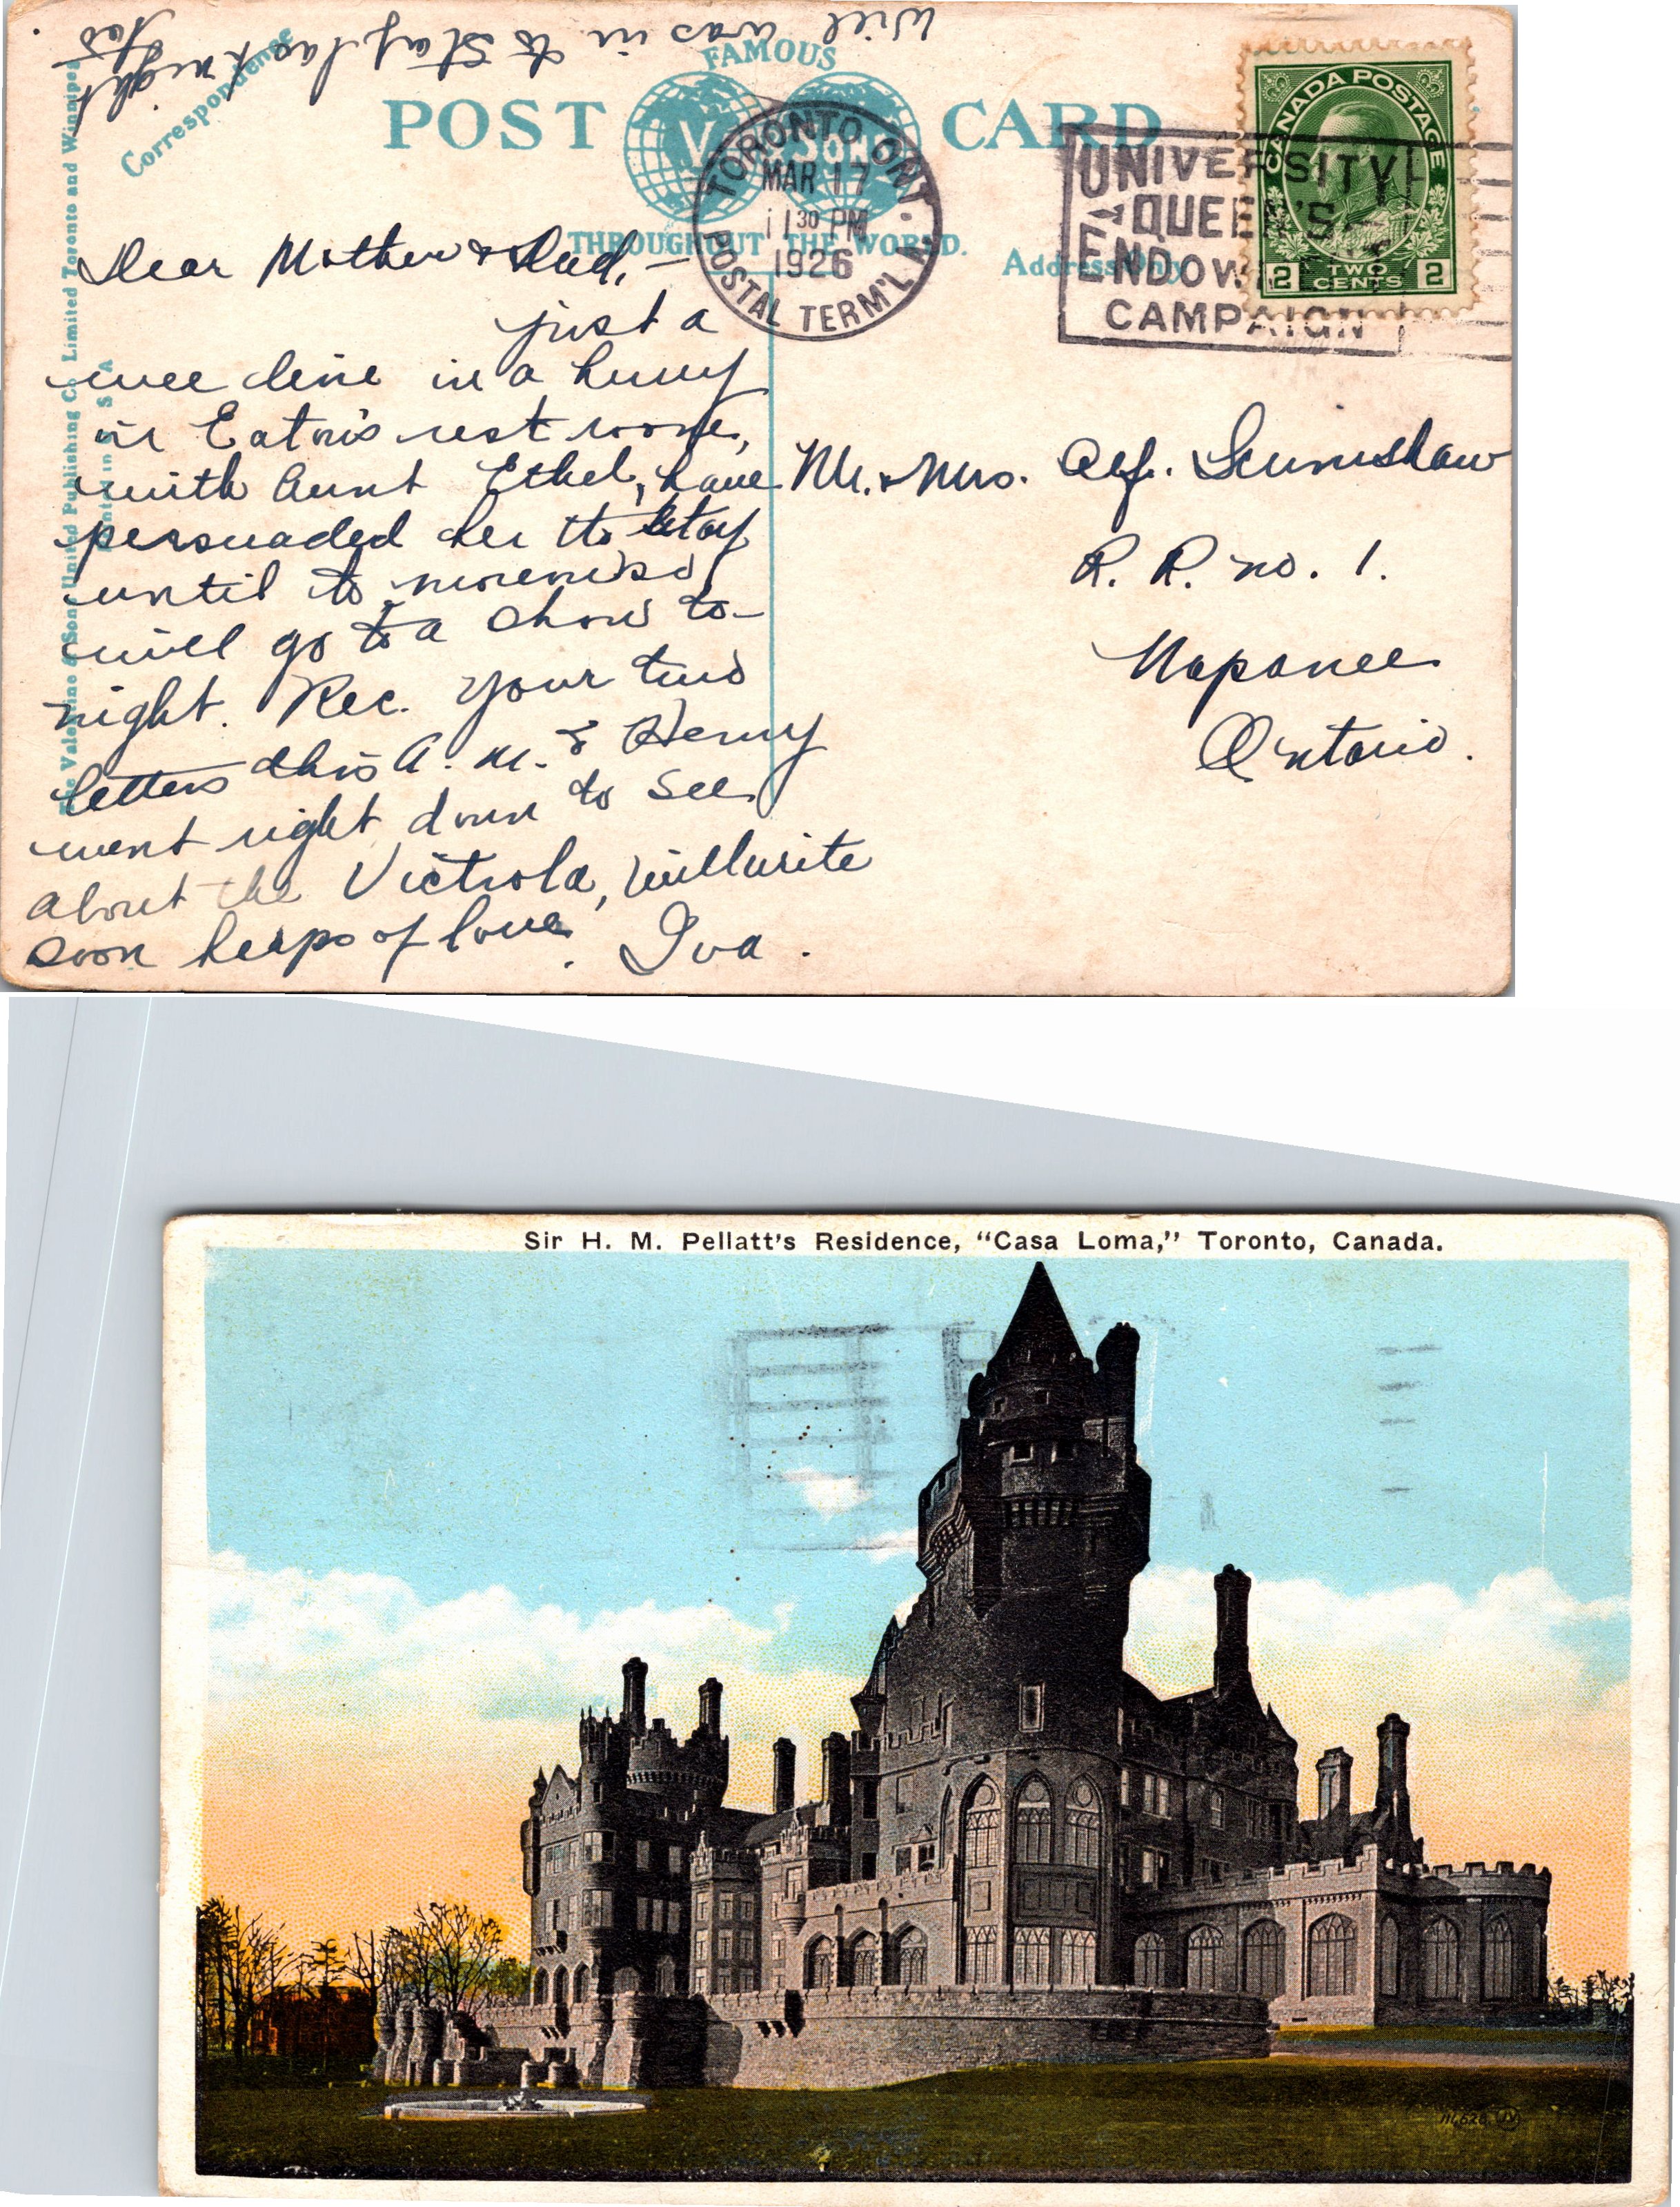 Will was in to stay last night
too
Correspondence
FAMOUS
POST CARD
V SONS
THROUGHOUT THE WORLD.
Address Only
The Valentine & Sons United Publishing Co. Limited Toronto and Winnipeg
Printed in U S A
TORONTO, ONT.
MAR 17
11 30 PM
1926
POSTAL TERM'L A
UNIVERSITY
QUEEN'S
ENDOWMENT
CAMPAIGN
CANADA POSTAGE
2 TWO CENTS 2
Dear Mother & Dad, —
just a
wee line in a hurry
in Eaton's rest room,
with Aunt Ethel, have
persuaded her to stay
until to-morrow so
will go to a show to-
night. Rec. your two
letters this A. M. & Henry
went right down to see
about the Victrola, will write
soon heaps of love. Iva.
Mr. & Mrs. Alf. Scrimshaw
R. R. no. 1.
Napanee
Ontario.
Sir H. M. Pellatt's Residence, "Casa Loma," Toronto, Canada.